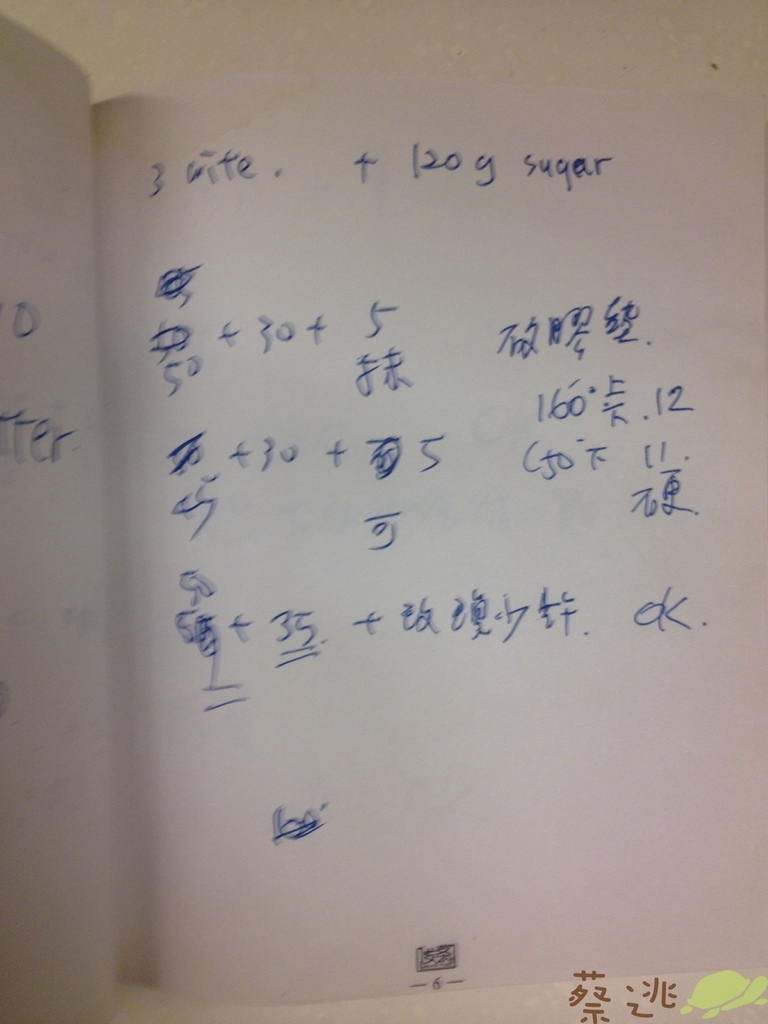 3 wite. + 120g sugar
50 + 30 + 5 矽膠墊.
抹
160° 上下.12
+ 30 + 5 150° 下 11.
45 硬.
可
50
+ 35 + 玫瑰少許. OK.
10
tter
— 6 —
蔡逃